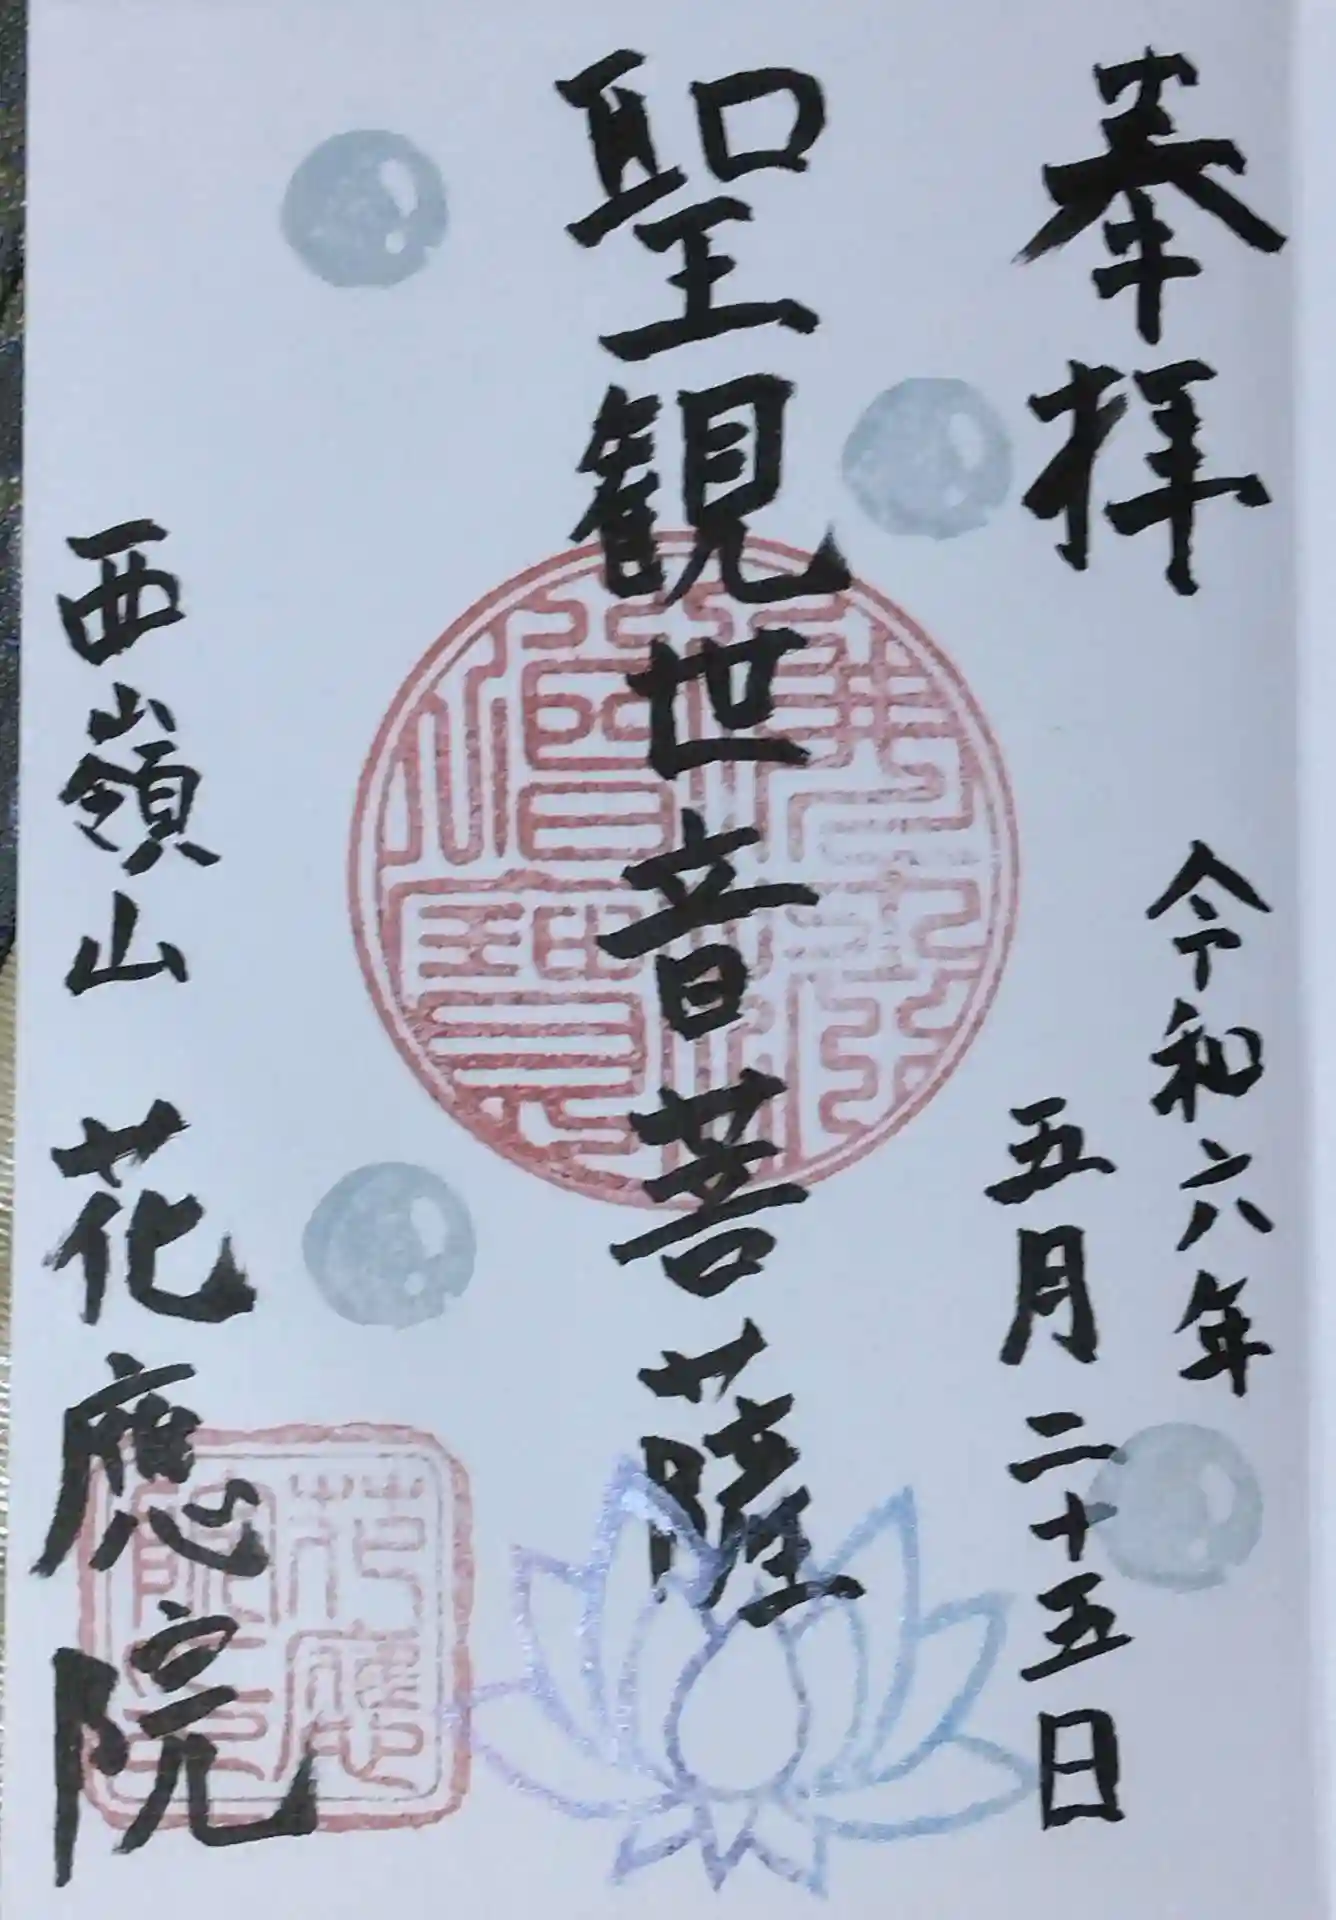 奉拝
令和六年
五月二十五日
聖観世音菩薩
佛法僧寶
西嶺山 花應院
花應院印